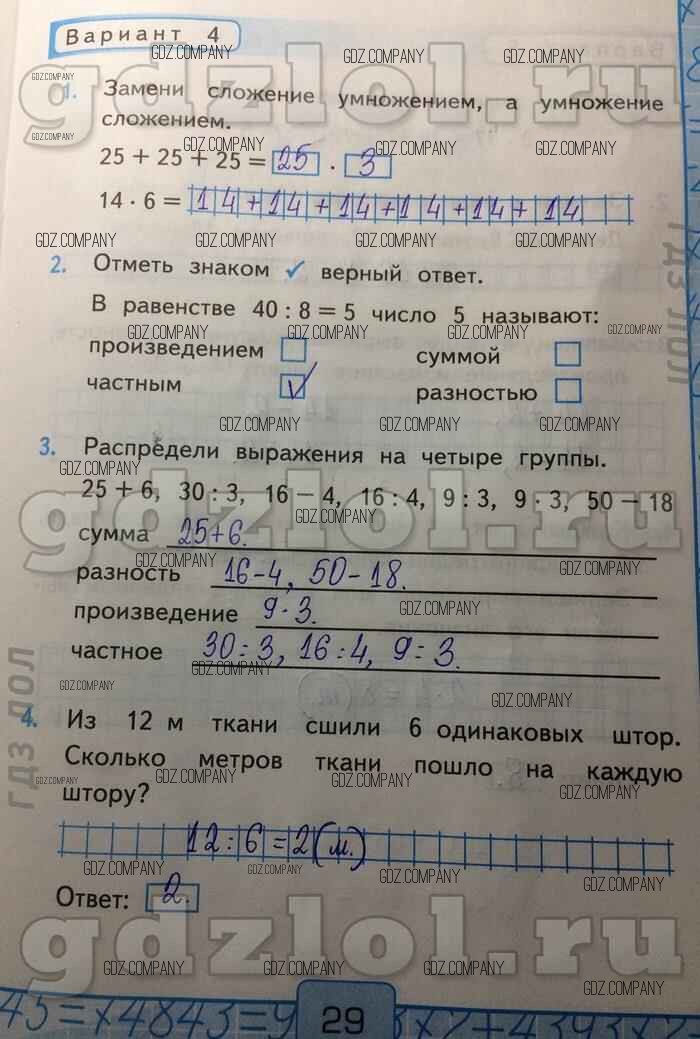 Вариант 4
1. Замени сложение умножением, а умножение
сложением.
25 + 25 + 25 = 25 · 3
14 · 6 = 14+14+14+14+14+14
2. Отметь знаком ✓ верный ответ.
В равенстве 40 : 8 = 5 число 5 называют:
произведением суммой
частным ✓ разностью
3. Распредели выражения на четыре группы.
25 + 6, 30 : 3, 16 – 4, 16 : 4, 9 : 3, 9 · 3, 50 – 18
сумма 25+6.
разность 16-4, 50-18.
произведение 9·3.
частное 30:3, 16:4, 9:3.
4. Из 12 м ткани сшили 6 одинаковых штор.
Сколько метров ткани пошло на каждую
штору?
12:6=2(м.)
Ответ: 2.
29
45=x4843=9 3x2+4393x2
gdzlol.ru
gdzlol.ru
gdzlol.ru
ГДЗ ЛОЛ
ГДЗ ЛОЛ
GDZ.COMPANY